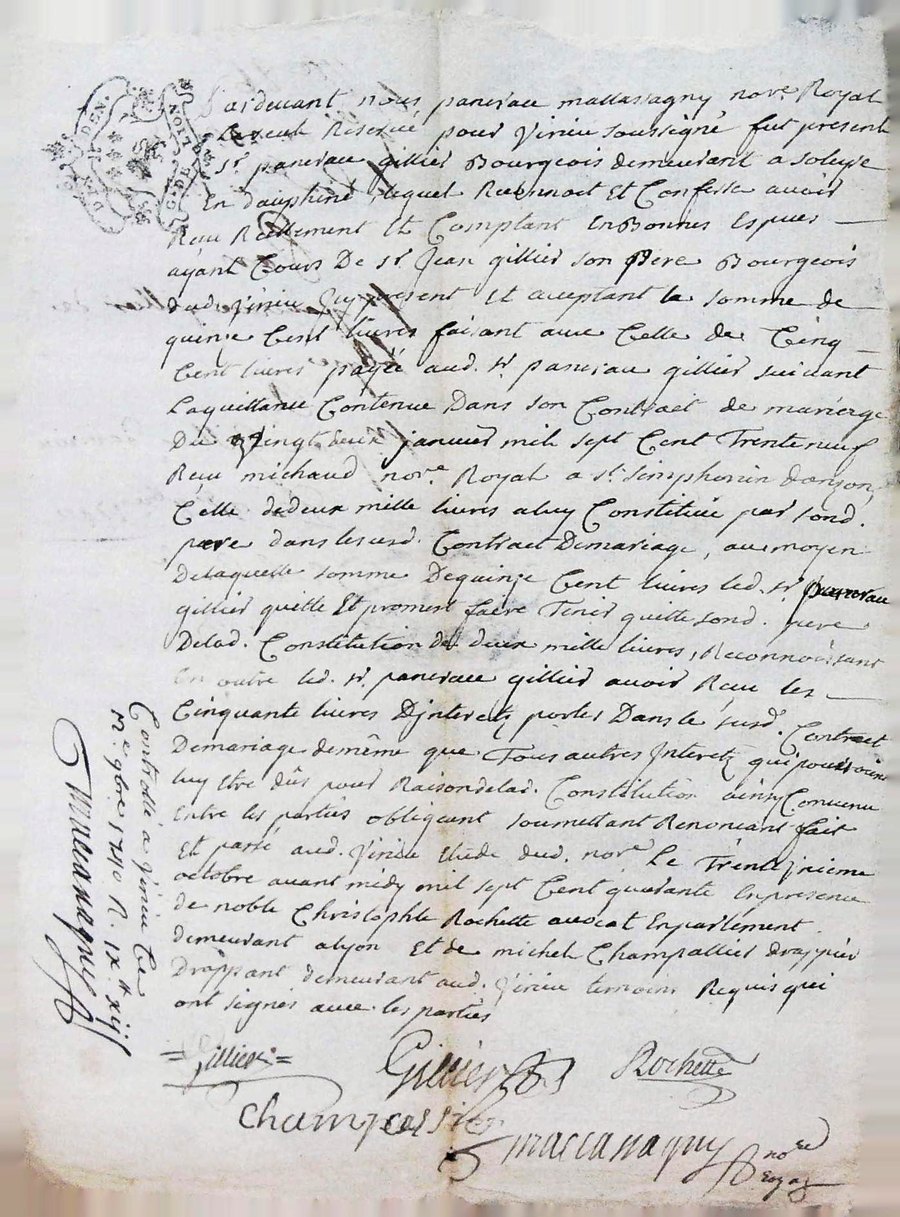 Pardevant nous pancrace massassagny nore. Royal
Reservé pour Virieu soussigné fut present
Sr. pancrace gillier Bourgeois demeurant a soleyse
En dauphiné, lequel Reconnoit Et Confesse avoir
Reçu Reellement Et Comptant En Bonnes Especes
ayant Cours De sr. Jean gillier son Pere Bourgeois
dud. Virieu Icy present Et acceptant la somme de
quinze Cent livres faisant avec Celle de Cinq
Cent livres payée aud. sr. pancrace gillier suivant
La quittance Contenue Dans son Contract de mariage
Du Vingt deux janvier mil sept Cent Trente neuf
Reçu michaud nore. Royal a st. simphorien dauzon,
Celle de deux mille livres a luy Constituée par sond.
pere dans lesusd. Contract Demariage, au moyen
Delaquelle somme Dequinze Cent livres led. sr. pancrace
gillier quitte Et promest faire Tenir quitte sond. pere
Delad. Constitution de deux mille livres, Reconnoissant
En outre led. sr. pancrace gillier avoir Reçu les
Cinquante livres D'interetz portés Dans le susd. Contract
Demariage demême que Tous autres Interetz qui pourroient
luy Etre dûs pour Raison delad. Constitution ainsy Convenu
Entre les parties obligeant soumettant Renonçant fait
Et passé aud. Virieu Etude dud. nore. Le Trente
octobre avant midy mil sept Cent quarante En presence
de noble Christophle Rochette avocat En parlement
demeurant a lyon Et de michel Champallier drappier
Drappant demeurant aud. Virieu temoins Requis qui
ont signés avec les parties
= Gillier =
Gillier
Rochette
Champallier
maccanagny nore
royal
Controllé a Virieu Le
12e. 9bre 1740 R. ix tt xij
maccanagny
G. DE